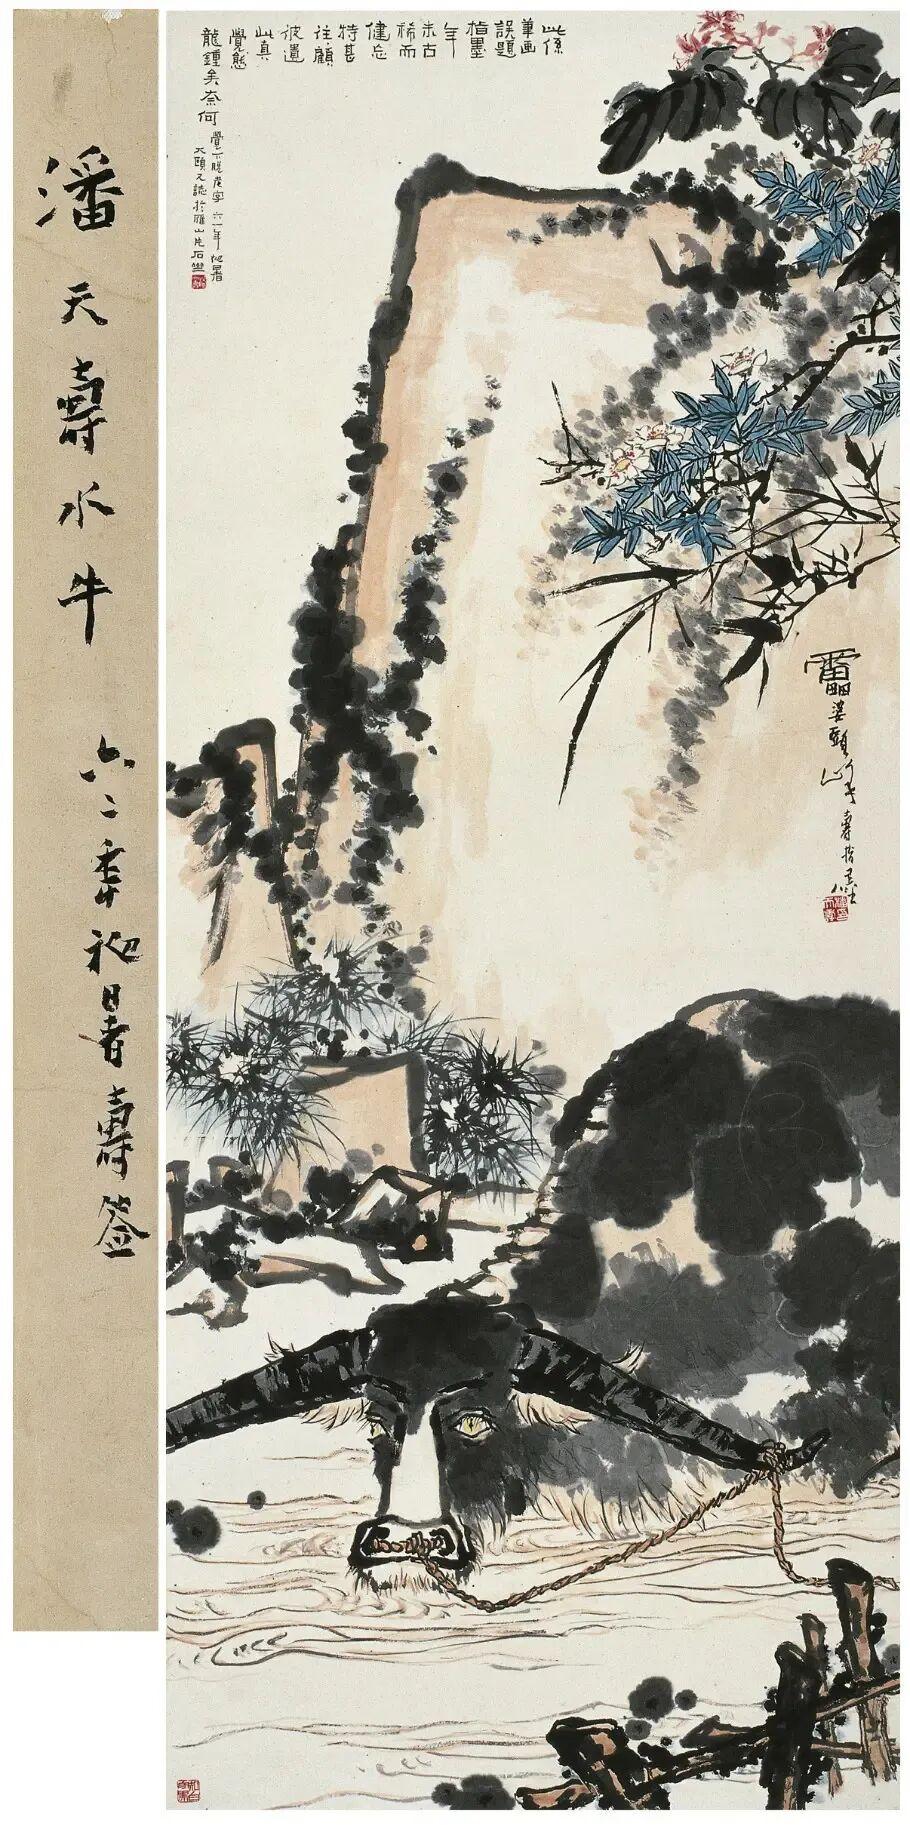 此係
筆画
誤題
指墨
年
未古
稀而
健忘
特甚
往顧
彼遺
此真
覺態
龍鍾矣奈何
覺下脱老字 六一年初暑
大頤又誌於雁山片石
雷婆頭峰壽指墨
潘天壽水牛
六二年初暑壽签